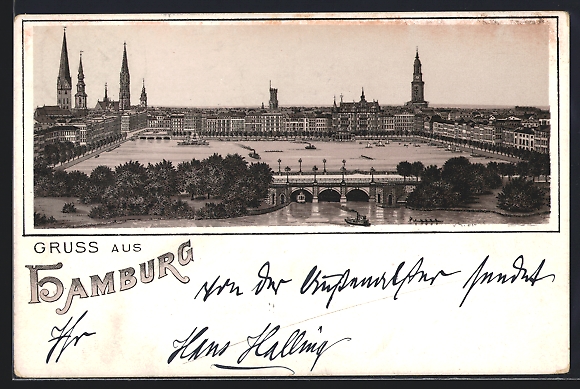 GRUSS AUS
HAMBURG
von der Außenalster sendet
Ihr
Hans Halling